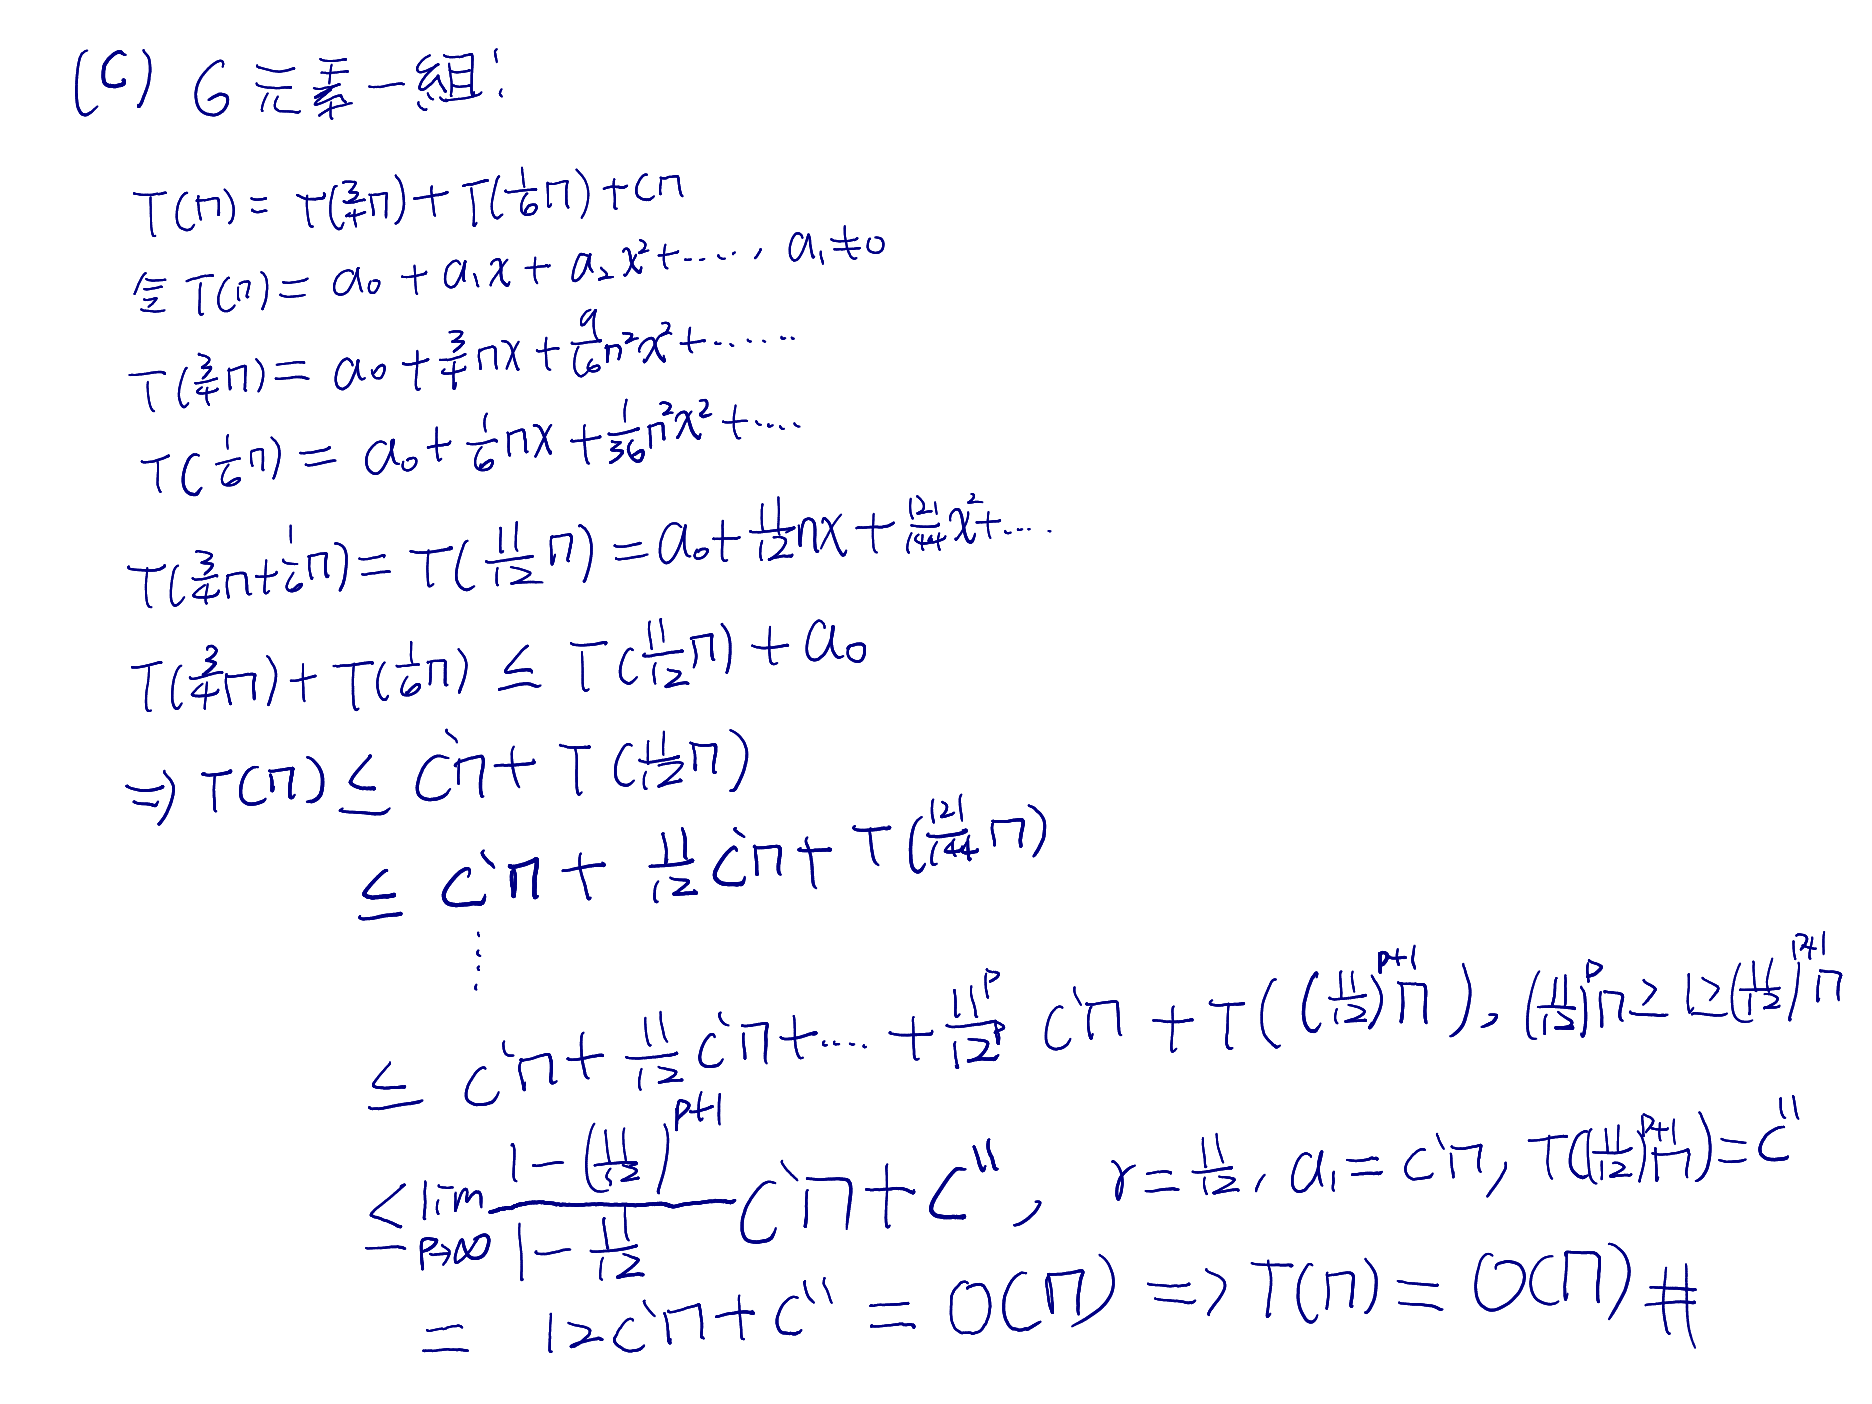 (C) 6元素一組:
T(n) = T(3/4 n) + T(1/6 n) + cn
令 T(n) = a₀ + a₁x + a₂x² + ....., a₁≠0
T(3/4 n) = a₀ + 3/4 nx + 9/16 n²x² + ......
T(1/6 n) = a₀ + 1/6 nx + 1/36 n²x² + ....
T(3/4 n + 1/6 n) = T(11/12 n) = a₀ + 11/12 nx + 121/144 x² + ....
T(3/4 n) + T(1/6 n) ≤ T(11/12 n) + a₀
⇒ T(n) ≤ c'n + T(11/12 n)
≤ c'n + 11/12 c'n + T(121/144 n)
⋮
≤ c'n + 11/12 c'n + .... + 11^p/12^p c'n + T((11/12)^(p+1) n), (11/12)^p n ≥ 1 ≥ (11/12)^(p+1) n
≤ lim p→∞ (1-(11/12)^(p+1))/(1-11/12) c'n + c'', r = 11/12, a₁ = c'n, T((11/12)^(p+1) n) = c''
= 12c'n + c'' = O(n) => T(n) = O(n) #